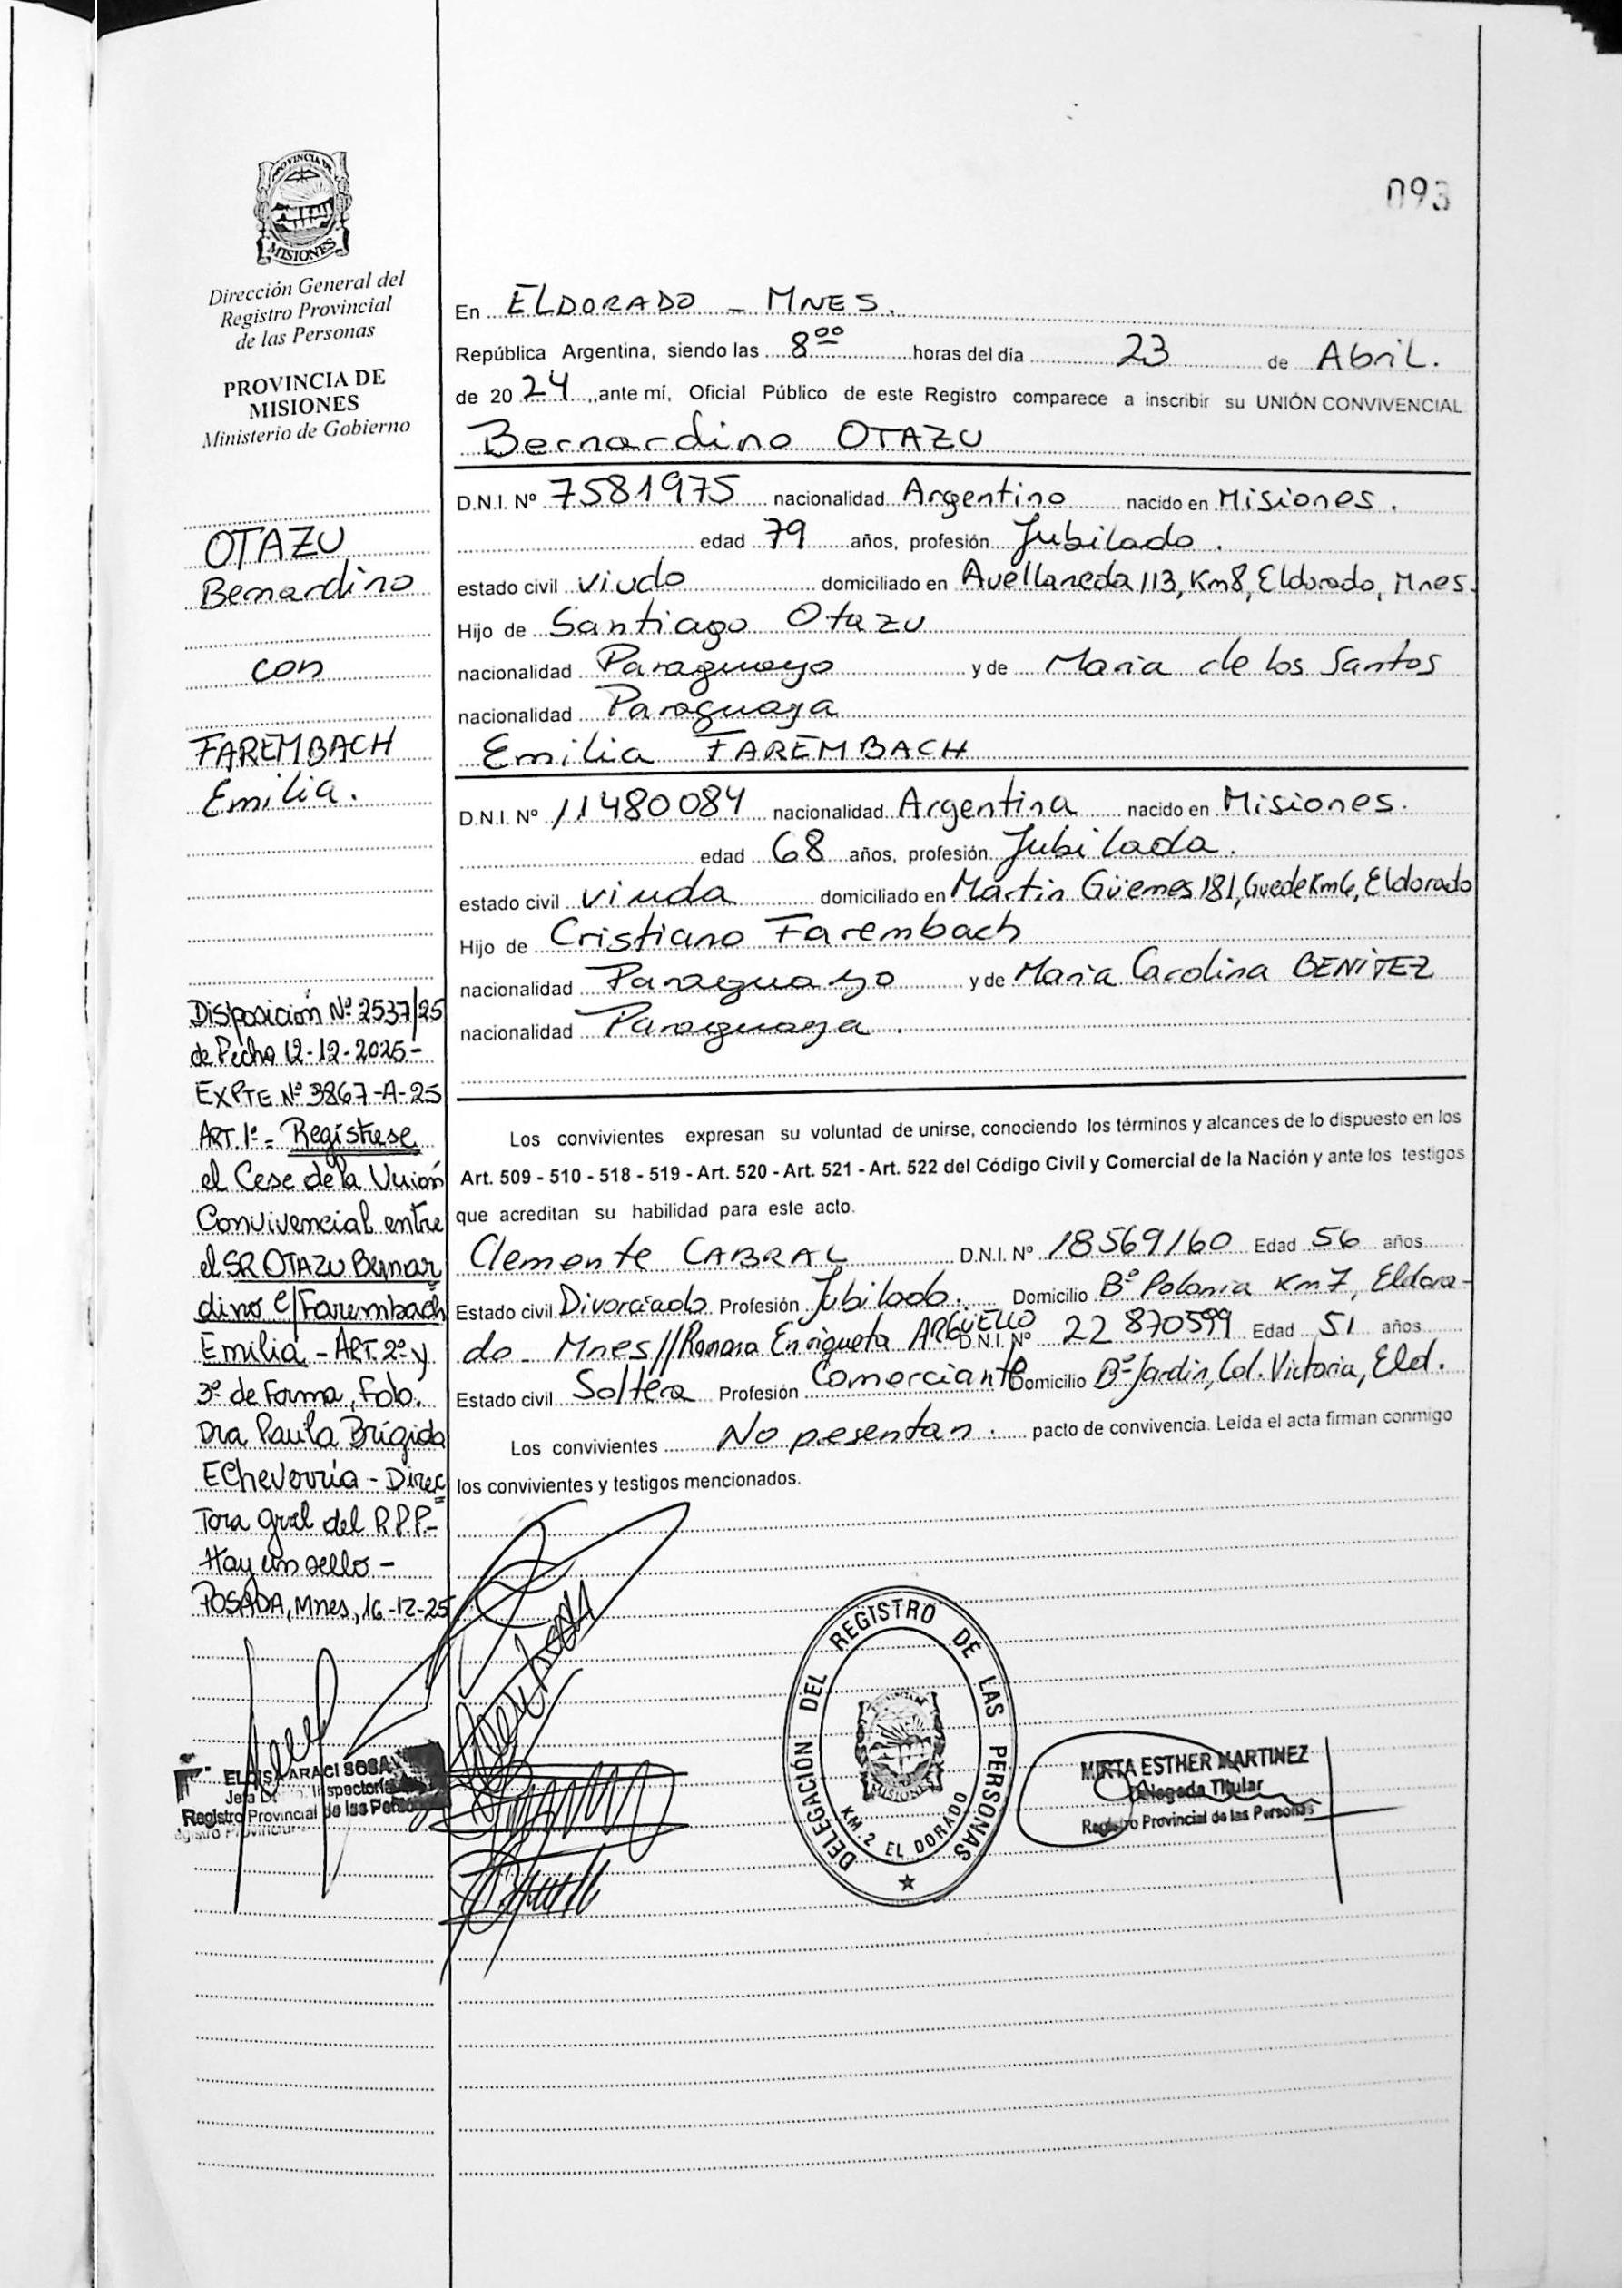 093
PROVINCIA DE
MISIONES
Dirección General del
Registro Provincial
de las Personas
PROVINCIA DE
MISIONES
Ministerio de Gobierno
OTAZU
Bernardino
con
FAREMBACH
Emilia.
Disposición Nº 2537/25
de Fecha 12-12-2025.-
EXPTE Nº 3867-A-25
ART. 1º- Regístrese
el Cese de la Unión
Convivencial entre
el SR OTAZU Bernar
dino c/ Farembach
Emilia - ART. 2º y
3º de forma, Fdo.
Dra Paula Brígida
Echeverría - Direc
tora gral del R.P.P.-
Hay un sello -
POSADA, Mnes, 16-12-25
ELOISA ARACI SOSA
Registro Provincial de las Personas
En ELDORADO - MNES.
República Argentina, siendo las 8 00 horas del día 23 de Abril.
de 2024, ante mí, Oficial Público de este Registro comparece a inscribir su UNIÓN CONVIVENCIAL
Bernardino OTAZU
D.N.I. Nº 7581975 nacionalidad Argentino nacido en Misiones.
edad 79 años, profesión Jubilado.
estado civil viudo domiciliado en Avellaneda 113, Km8, Eldorado, Mnes.
Hijo de Santiago Otazu
nacionalidad Paraguayo y de Maria de los Santos
nacionalidad Paraguaya
Emilia FAREMBACH
D.N.I. Nº 11480084 nacionalidad Argentina nacido en Misiones.
edad 68 años, profesión Jubilada.
estado civil viuda domiciliado en Martin Güemes 181, Km6, Eldorado
Hijo de Cristiano Farembach
nacionalidad Paraguayo y de Maria Carolina BENITEZ
nacionalidad Paraguaya.
Los convivientes expresan su voluntad de unirse, conociendo los términos y alcances de lo dispuesto en los
Art. 509 - 510 - 518 - 519 - Art. 520 - Art. 521 - Art. 522 del Código Civil y Comercial de la Nación y ante los testigos
que acreditan su habilidad para este acto.
Clemente CABRAL D.N.I. Nº 18569160 Edad 56 años
Estado civil Divorciado Profesión Jubilado. Domicilio Bº Polonia Km 7, Eldora-
do - Mnes // Ramona Enriqueta ARGÜELLO D.N.I. Nº 22870599 Edad 51 años
Estado civil Soltera Profesión Comerciante Domicilio Bº Jardin, Col. Victoria, Eld.
Los convivientes No presentan. pacto de convivencia. Leída el acta firman conmigo
los convivientes y testigos mencionados.
DELEGACIÓN DEL REGISTRO DE LAS PERSONAS
MISIONES
KM. 2 EL DORADO
MIRTA ESTHER MARTINEZ
Delegada Titular
Registro Provincial de las Personas